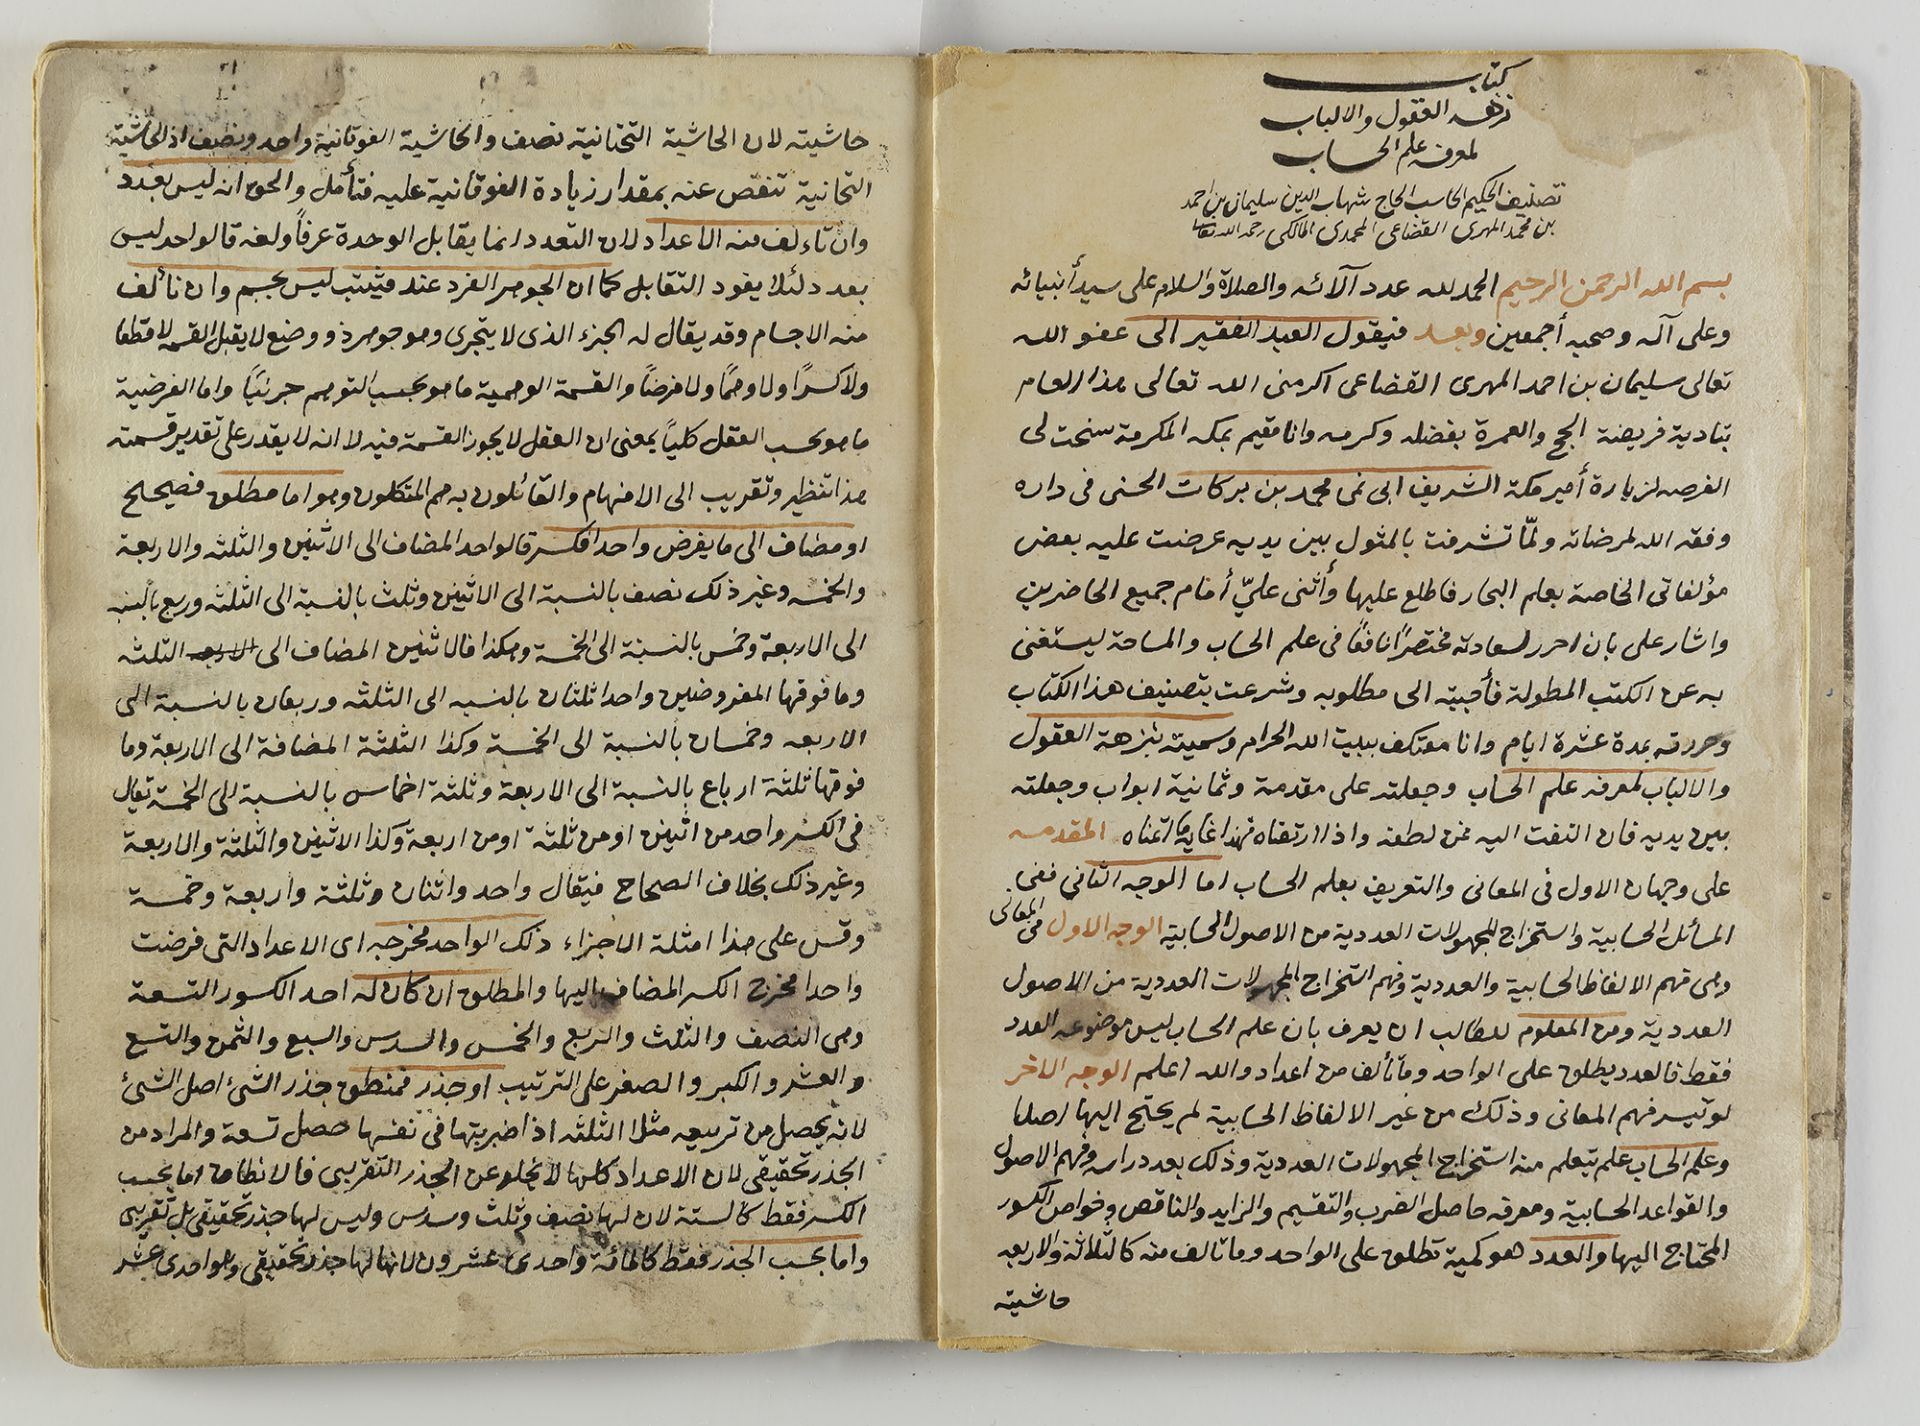 كتاب
نزهة العقول والالباب
لمعرفة علم الحساب
تصنيف الحكيم الحاسب الحاج شهاب الدين سليمان بن احمد
بن محمد المهري القضاعي المحمدي المالكي رحمه الله تعالى
بسم الله الرحمن الرحيم الحمد لله عدد آلائه والصلاة والسلام على سيد أنبيائه
وعلى آله وصحبه أجمعين وبعد فيقول العبد الفقير الى عفو الله
تعالى سليمان بن احمد المهرى القضاعى اكرمنى الله تعالى هذا العام
بتادية فريضة الحج والعمرة بفضله وكرمه وانا مقيم بمكه المكرمة سنحت لى
الفرصه لزيارة أمير مكة الشريف ابى نمى محمد بن بركات الحسنى فى داره
وفقه الله لمرضاته ولمّا تشرفت بالمثول بين يديه عرضت عليه بعض
مؤلفاتى الخاصة بعلم البحار فاطلع عليها وأثنى عليّ أمام جميع الحاضرين
واشار على بان احرر لسعادته مختصرًا نافعًا فى علم الحساب والمساحة ليستغنى
به عن الكتب المطولة فأجبته الى مطلوبه وشرعت بتصنيف هذا الكتاب
وحررته بمدة عشرة ايام وانا معتكف ببيت الله الحرام وسميته بنزهة العقول
والالباب لمعرفه علم الحساب وجعلته على مقدمة وثمانية ابواب وجعلته
بين يديه فان التفت اليه فمن لطفه واذا ارتضاه فهذا غاية ما اتمناه المقدمه
على وجهان الاول فى المعانى والتعريف بعلم الحساب اما الوجه الثانى ففى
المسائل الحسابية واستخراج المجهولات العددية من الاصول الحسابية الوجه الاول فى المعانى
وهى فهم الالفاظ الحسابية والعددية وفهم استخراج المجهولات العددية من الاصول
العددية ومن المعلوم للطالب ان يعرف بان علم الحساب ليس موضوعه العدد
فقط فالعدد يطلق على الواحد وما تألف من اعداد والله اعلم الوجه الاخر
لو تيسر فهم المعانى وذلك من غير الالفاظ الحسابية لم يحتج اليها اصلا
وعلم الحساب علم يتعلم منه استخراج المجهولات العددية وذلك بعد دراسه وفهم الاصول
والقواعد الحسابية ومعرفه حاصل الضرب والتقسيم والزايد والناقص وخواص الكسور
المحتاج اليها والعدد هو كمية تطلق على الواحد وما تالف منه كالثلاثة والاربعه
حاشيته
حاشيته لان الحاشية التحتانية نصف والحاشية الفوقانية واحد ونصف اذ الحاشية
التحانية تنقص عنه بمقدار زيادة الفوقانية عليه فتأمل والحق انه ليس بعدد
وان تاءلف منه الاعداد لان التعدد انما يقابل الوحدة عرفاً ولغه فالواحد ليس
بعدد لئلا يفود التقابل كما ان الجوهر الفرد عند مثبته ليس بجسم وان تألف
منه الاجسام وقد يقال له الجزء الذى لا يتجرى وهو جوهر ذو وضع لا يقبل القسمه لا قطعا
ولا كسرًا ولا وهمًا ولا فرضًا والقسمة الوهمية ما هو بحسب التوهم جزئيًا واما الفرضية
ما هو بحسب العقل كليًا بمعنى ان العقل لا يجوز القسمة فيه لا انه لا يقدر على تقدير قسمته
هذا تنظير وتقريب الى الافهام والقائلون به هم المتكلمون وهو اما مطلق فصحيح
او مضاف الى ما يفرض واحدا فكسر فالواحد المضاف الى الاثنين والثلثه والاربعة
والخمسه وغير ذلك نصف بالنسبة الى الاثنين وثلث بالنسبة الى الثلثه وربع بالنسبة
الى الاربعة وخمس بالنسبة الى الخمسة وهكذا فالاثنين المضاف الى الاربعه الثلثه
وما فوقها المفروضين واحدا ثلثان بالنسبه الى الثلثه وربعان بالنسبة الى
الاربعه وخمسان بالنسبة الى الخمسة وكذا الثلثة المضافة الى الاربعة وما
فوقها ثلثة ارباع بالنسبة الى الاربعة وثلثة اخماس بالنسبة الى الخمسة تقال
فى الكسر واحد من اثنين او من ثلثة او من اربعة وكذا الاثنين والثلثة والاربعة
وغير ذلك بخلاف الصحاح فيقال واحد واثنان وثلثة واربعة وخمسة
وقس على هذا امثلة الاجزاء ذلك الواحد مخرجه اى الاعداد التى فرضت
واحدا مخرج الكسر المضاف اليها والمطلق ان كان له احد الكسور التسعة
وهى النصف والثلث والربع والخمس والسدس والسبع والثمن والتسع
والعشر والكبر والصغر على الترتيب او جذر فمنطق جذر الشئ اصل الشئ
لانه يحصل من تربيعه مثلا الثلثه اذا ضربتها فى نفسها حصل تسعة والمراد من
الجذر تحقيقى لان الاعداد كلها لا يخلو عن الجذر التقريبى فالانطاق اما بحسب
الكسر فقط كالستة لان لها نصف وثلث وسدس وليس لها جذر تحقيقى بل تقريبى
واما بحسب الجذر فقط كالمائة واحدى عشرون لانها لها جذر تحقيقى وهو احدى عشر